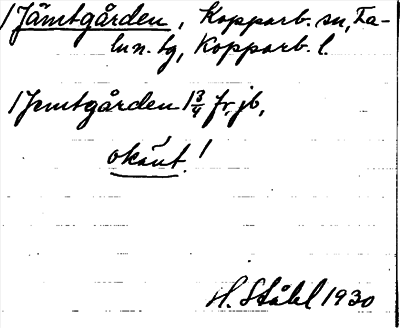 1 Jämtgården, Kopparb. sn, Fa-
lun. tg, Kopparb. l.
1 Jemtgården 1 3/4 fr, jb,
okänt!
H. Ståhl 1930